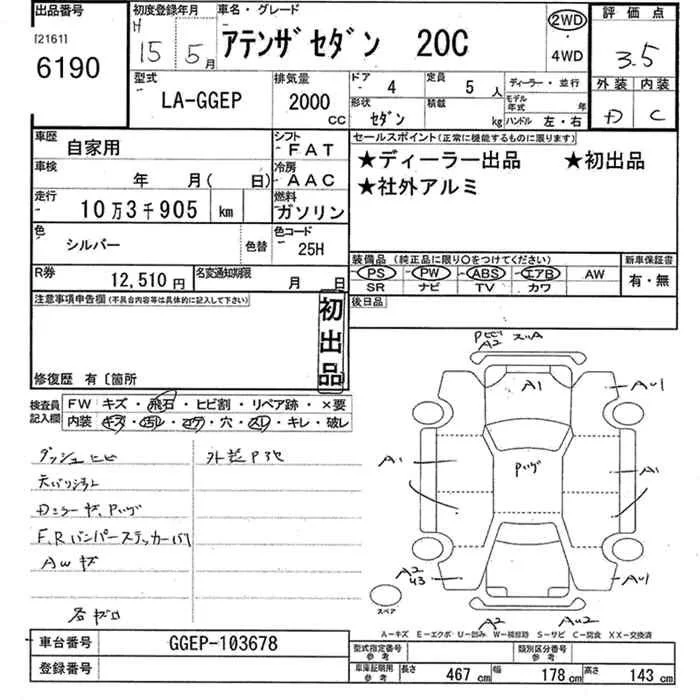 出品番号
[2161]
6190
初度登録年月
H 15 5月
車名・グレード
アテンザセダン 20C
2WD
・
4WD
評価点
3.5
外装 内装
D C
型式
LA-GGEP
排気量
2000 CC
ドア 4
定員 5 人
ディーラー・並行
形状 セダン
積載 kg
モデル年式 年
ハンドル 左・右
車歴 自家用
シフト FAT
車検 年 月( 日)
冷房 AAC
走行 10万3千905 km
燃料 ガソリン
色 シルバー
色替
色コード 25H
R券 12,510円
名変通知期限 月 日
セールスポイント(正常に機能するものに限ります)
★ディーラー出品 ★初出品
★社外アルミ
装備品(純正品に限り○をつけてください)
PS ・ PW ・ ABS ・ エアB ・ AW
SR ナビ TV カワ
新車保証書
有・無
後日品
注意事項申告欄(不具合内容等は具体的に記入して下さい)
初出品
修復歴 有〔箇所
検査員記入欄
FW キズ・飛石・ヒビ割・リペア跡・×要
内装 キズ・汚レ・コゲ・穴・スレ・キレ・破レ
ダッシュヒビ
外装Pヨセ
天バリシミト
F.Rバンパーステッカーハリ
AWキズ
各キズ
A2
A1
AU1
A1
A1
A2
U3
AU1
A2
AU2
スペア
A-キズ E-エクボ U-凹み W-補修跡 S-サビ C-腐食 XX-交換済
車台番号 GGEP-103678
登録番号
型式指定番号 参考
類別区分番号 参考
車庫証明用 参考
長さ 467 cm
幅 178 cm
高さ 143 cm